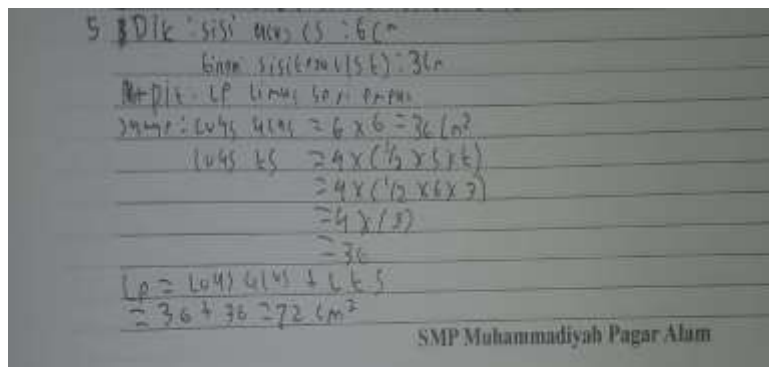 5 Dik : sisi alas (s : 6 cm
tinggi sisi tegak (st) : 3 cm
Dit : LP limas segi empat
Jawab : Luas alas = 6 x 6 = 36 cm²
Luas ts = 4 x (1/2 x s x t)
= 4 x (1/2 x 6 x 3)
= 4 x (9)
= 36
Lp = Luas alas + L t s
= 36 + 36 = 72 cm²
SMP Muhammadiyah Pagar Alam